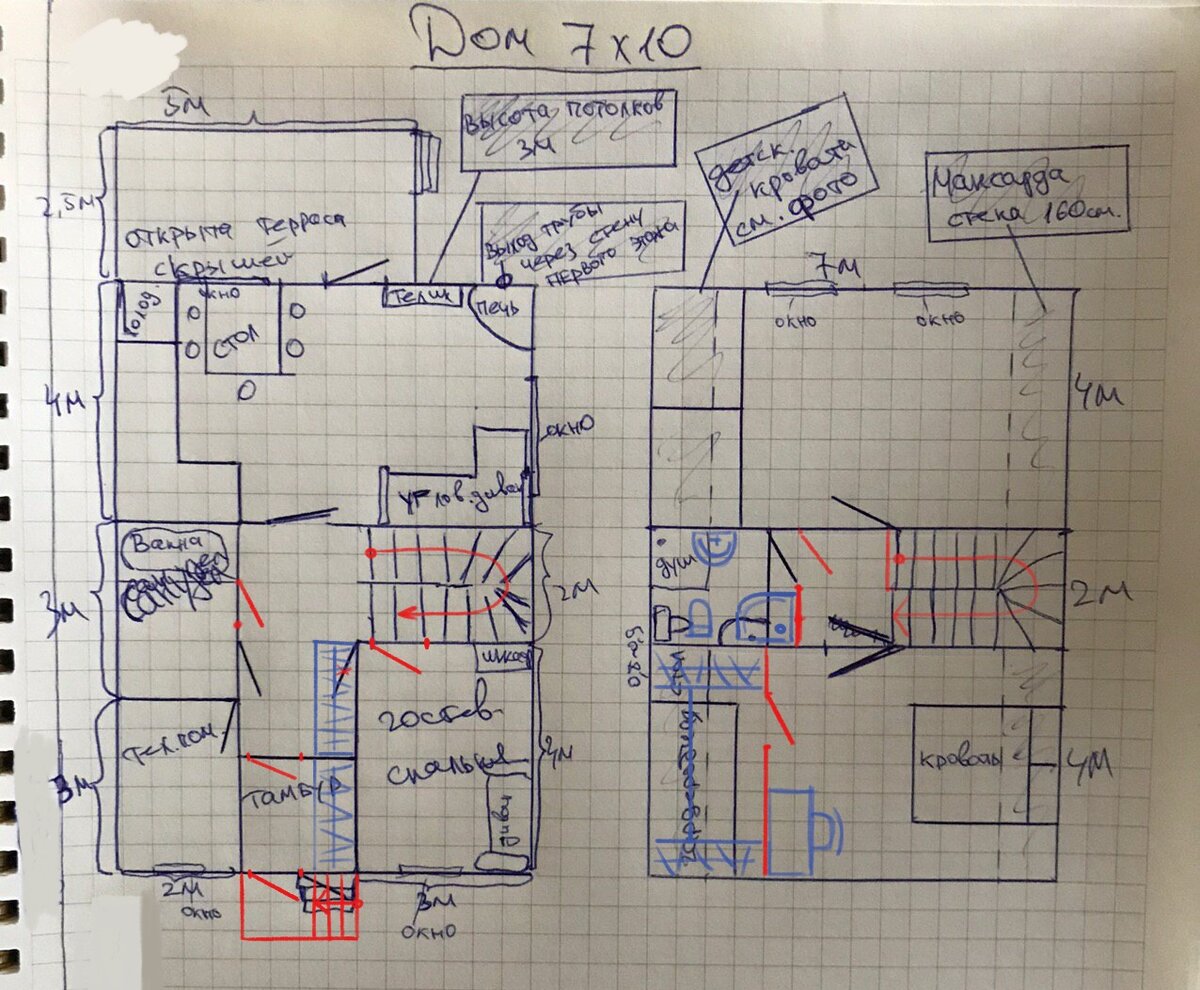 Дом 7х10
5м
Высота потолков
3м
детск.
кровати
см. фото
Мансарда
стена 160см.
2,5м
открыта терраса
с крышей
выход трубы
через стену
первого этажа
7м
холод.
окно
стол
телик
печь
окно
окно
4м
окно
4м
углов. диван
Ванна
санузел
3м
2м
душ
2м
шкаф
гостев.
спальня
диван
4м
тех. пом.
3м
тамбур
2м
окно
3м
окно
стол
гардеробная
кровать
4м